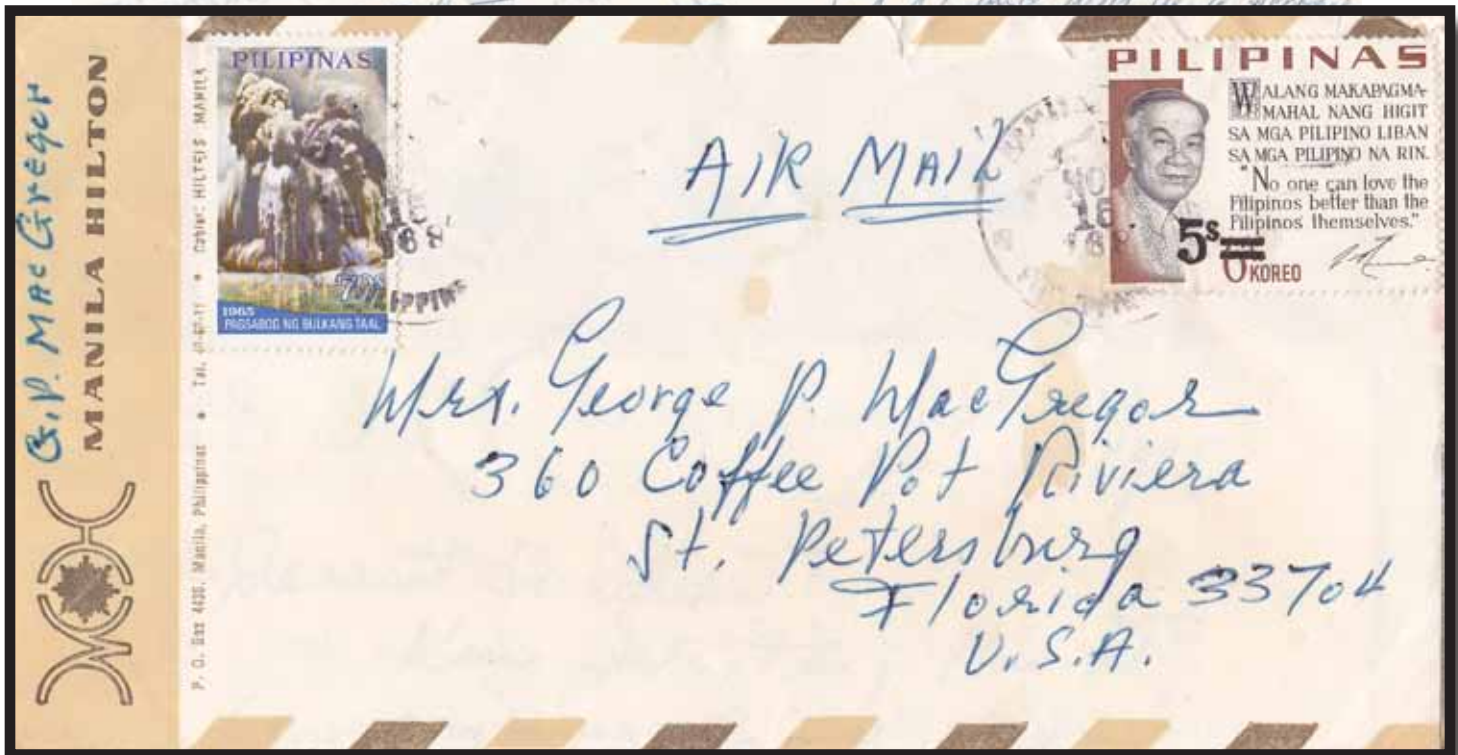 G.P. MacGregor
MANILA HILTON
P. O. Box 4436, Manila, Philippines • Tel. • HILTELS MANILA
PILIPINAS
70s
1965
PAGSABOG NG BULKANG TAAL
AIR MAIL
PILIPINAS
WALANG MAKAPAGMA-
MAHAL NANG HIGIT
SA MGA PILIPINO LIBAN
SA MGA PILIPINO NA RIN.
"No one can love the
Filipinos better than the
Filipinos themselves."
5s
6 KOREO
Mrs. George P. MacGregor
360 Coffee Pot Riviera
St. Petersburg
Florida 33704
U.S.A.